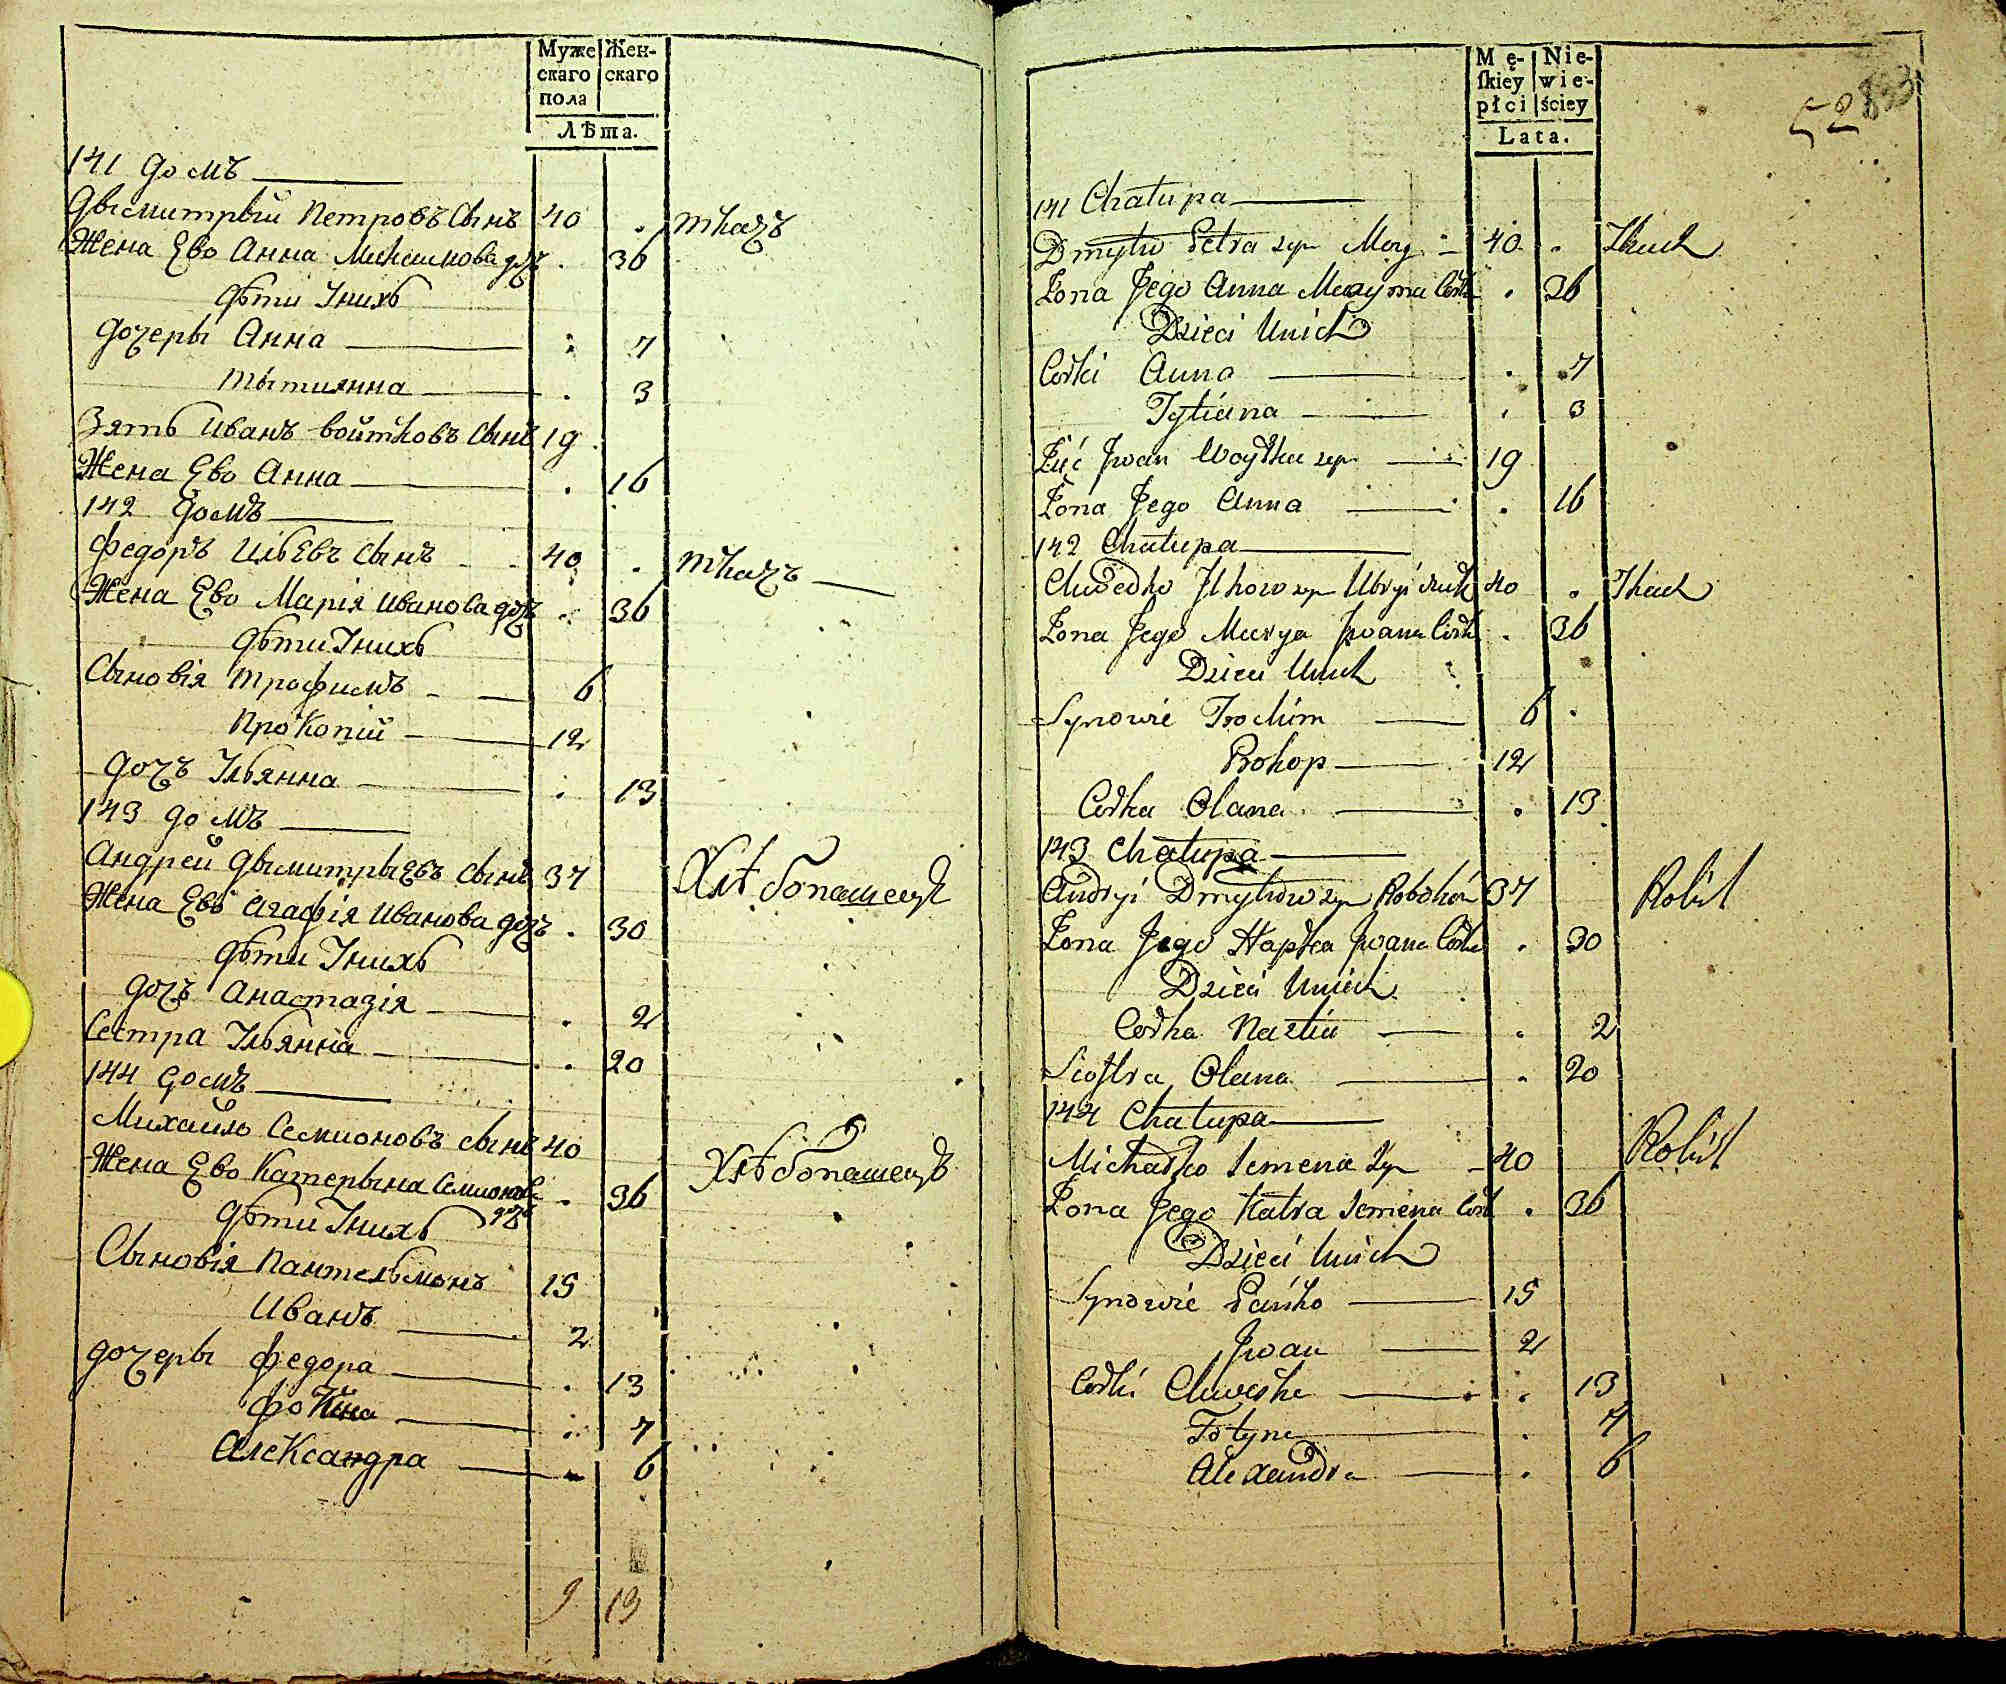 Муже
скаго
пола
Жен-
скаго
Лѣта.
141 домъ
Дысмитрый Петровъ Сынъ 40 ткачъ
Жена Ево Анна дочь 36
Дѣти Унихъ
дочеры Анна 7
Тытиянна 3
Зять Иванъ Войтковъ Сынъ 19
Жена Ево Анна 16
142 домъ
Федоръ Ильевъ Сынъ 40 ткачъ
Жена Ево Марія Иванова дочь 36
Дѣти Унихъ
Сыновія Трофимъ 6
Прокопій 12
дочъ Ульянна 13
143 домъ
Андрей Дысмитрыевъ Сынъ 37 Хлѣбопашецъ
Жена Ево Агафія Иванова дочь 30
Дѣти Унихъ
дочъ Анастазія 2
Сестра Ульянна 20
144 домъ
Михайло Семионовъ Сынъ 40 Хлѣбопашецъ
Жена Ево Катерына Семионова дочь 36
Дѣти Унихъ
Сыновія Пантельмонъ 15
Иванъ 2
дочеры Федора 13
7
Александра 6
9 13
Mę-
ſkiey
płci
Nie-
wie-
ściey
Lata.
52
833
141 Chałupa
Dmytro Petra syn 40 Tkacz
Żona Jego Anna Maxyma Corka 36
Dzieci Unich
Corki Anna 7
Tytiana 3
Zięć Jwan Woytka syn 19
Żona Jego Anna 16
142 Chałupa
Chwedko Jlkow syn 40 Tkacz
Żona Jego Marya Jwana Corka 36
Dzieci Unich
Synowie Trochim 6
Prokop 12
Corka Olana 13
143 Chałupa
Andryi Dmytrow syn 37 Robił
Żona Jego Hapka Jwana Corka 30
Dzieci Unich
Corka Nastia 2
Siostra Olana 20
144 Chałupa
Michayło Semena syn 40 Robił
Żona Jego Katra Semena Cork 36
Dzieci Unich
Synowie Pańko 15
Jwan 2
Corki Chweśka 13
Fotyna 7
Alexandra 6